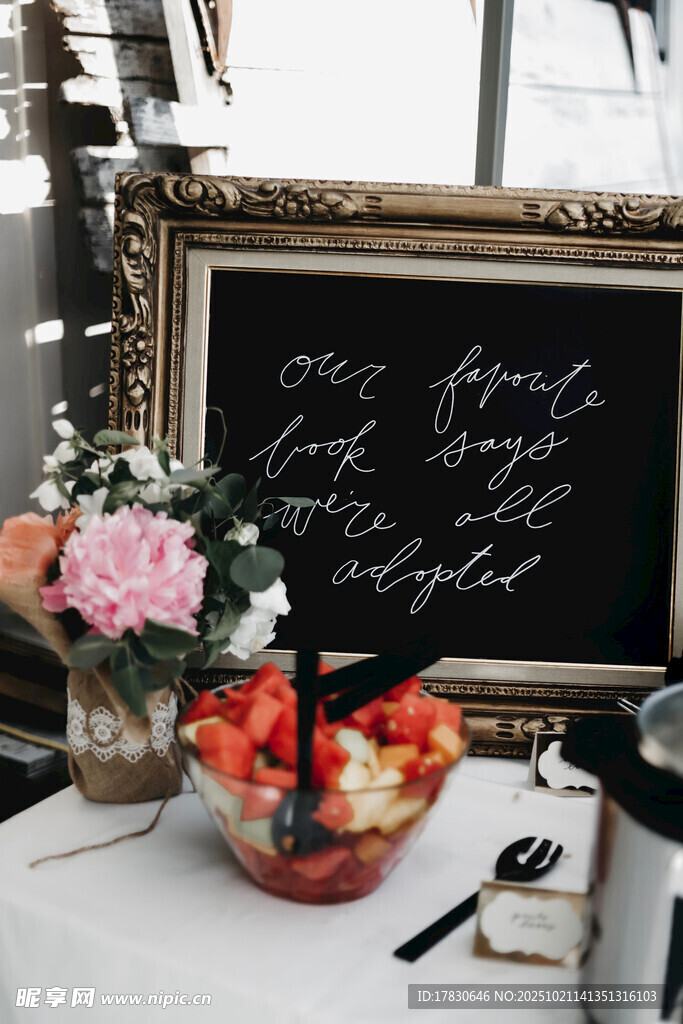 our favorite
book says
we're all
adopted
昵享网 www.nipic.cn
ID:17830646 NO:20251021141351316103